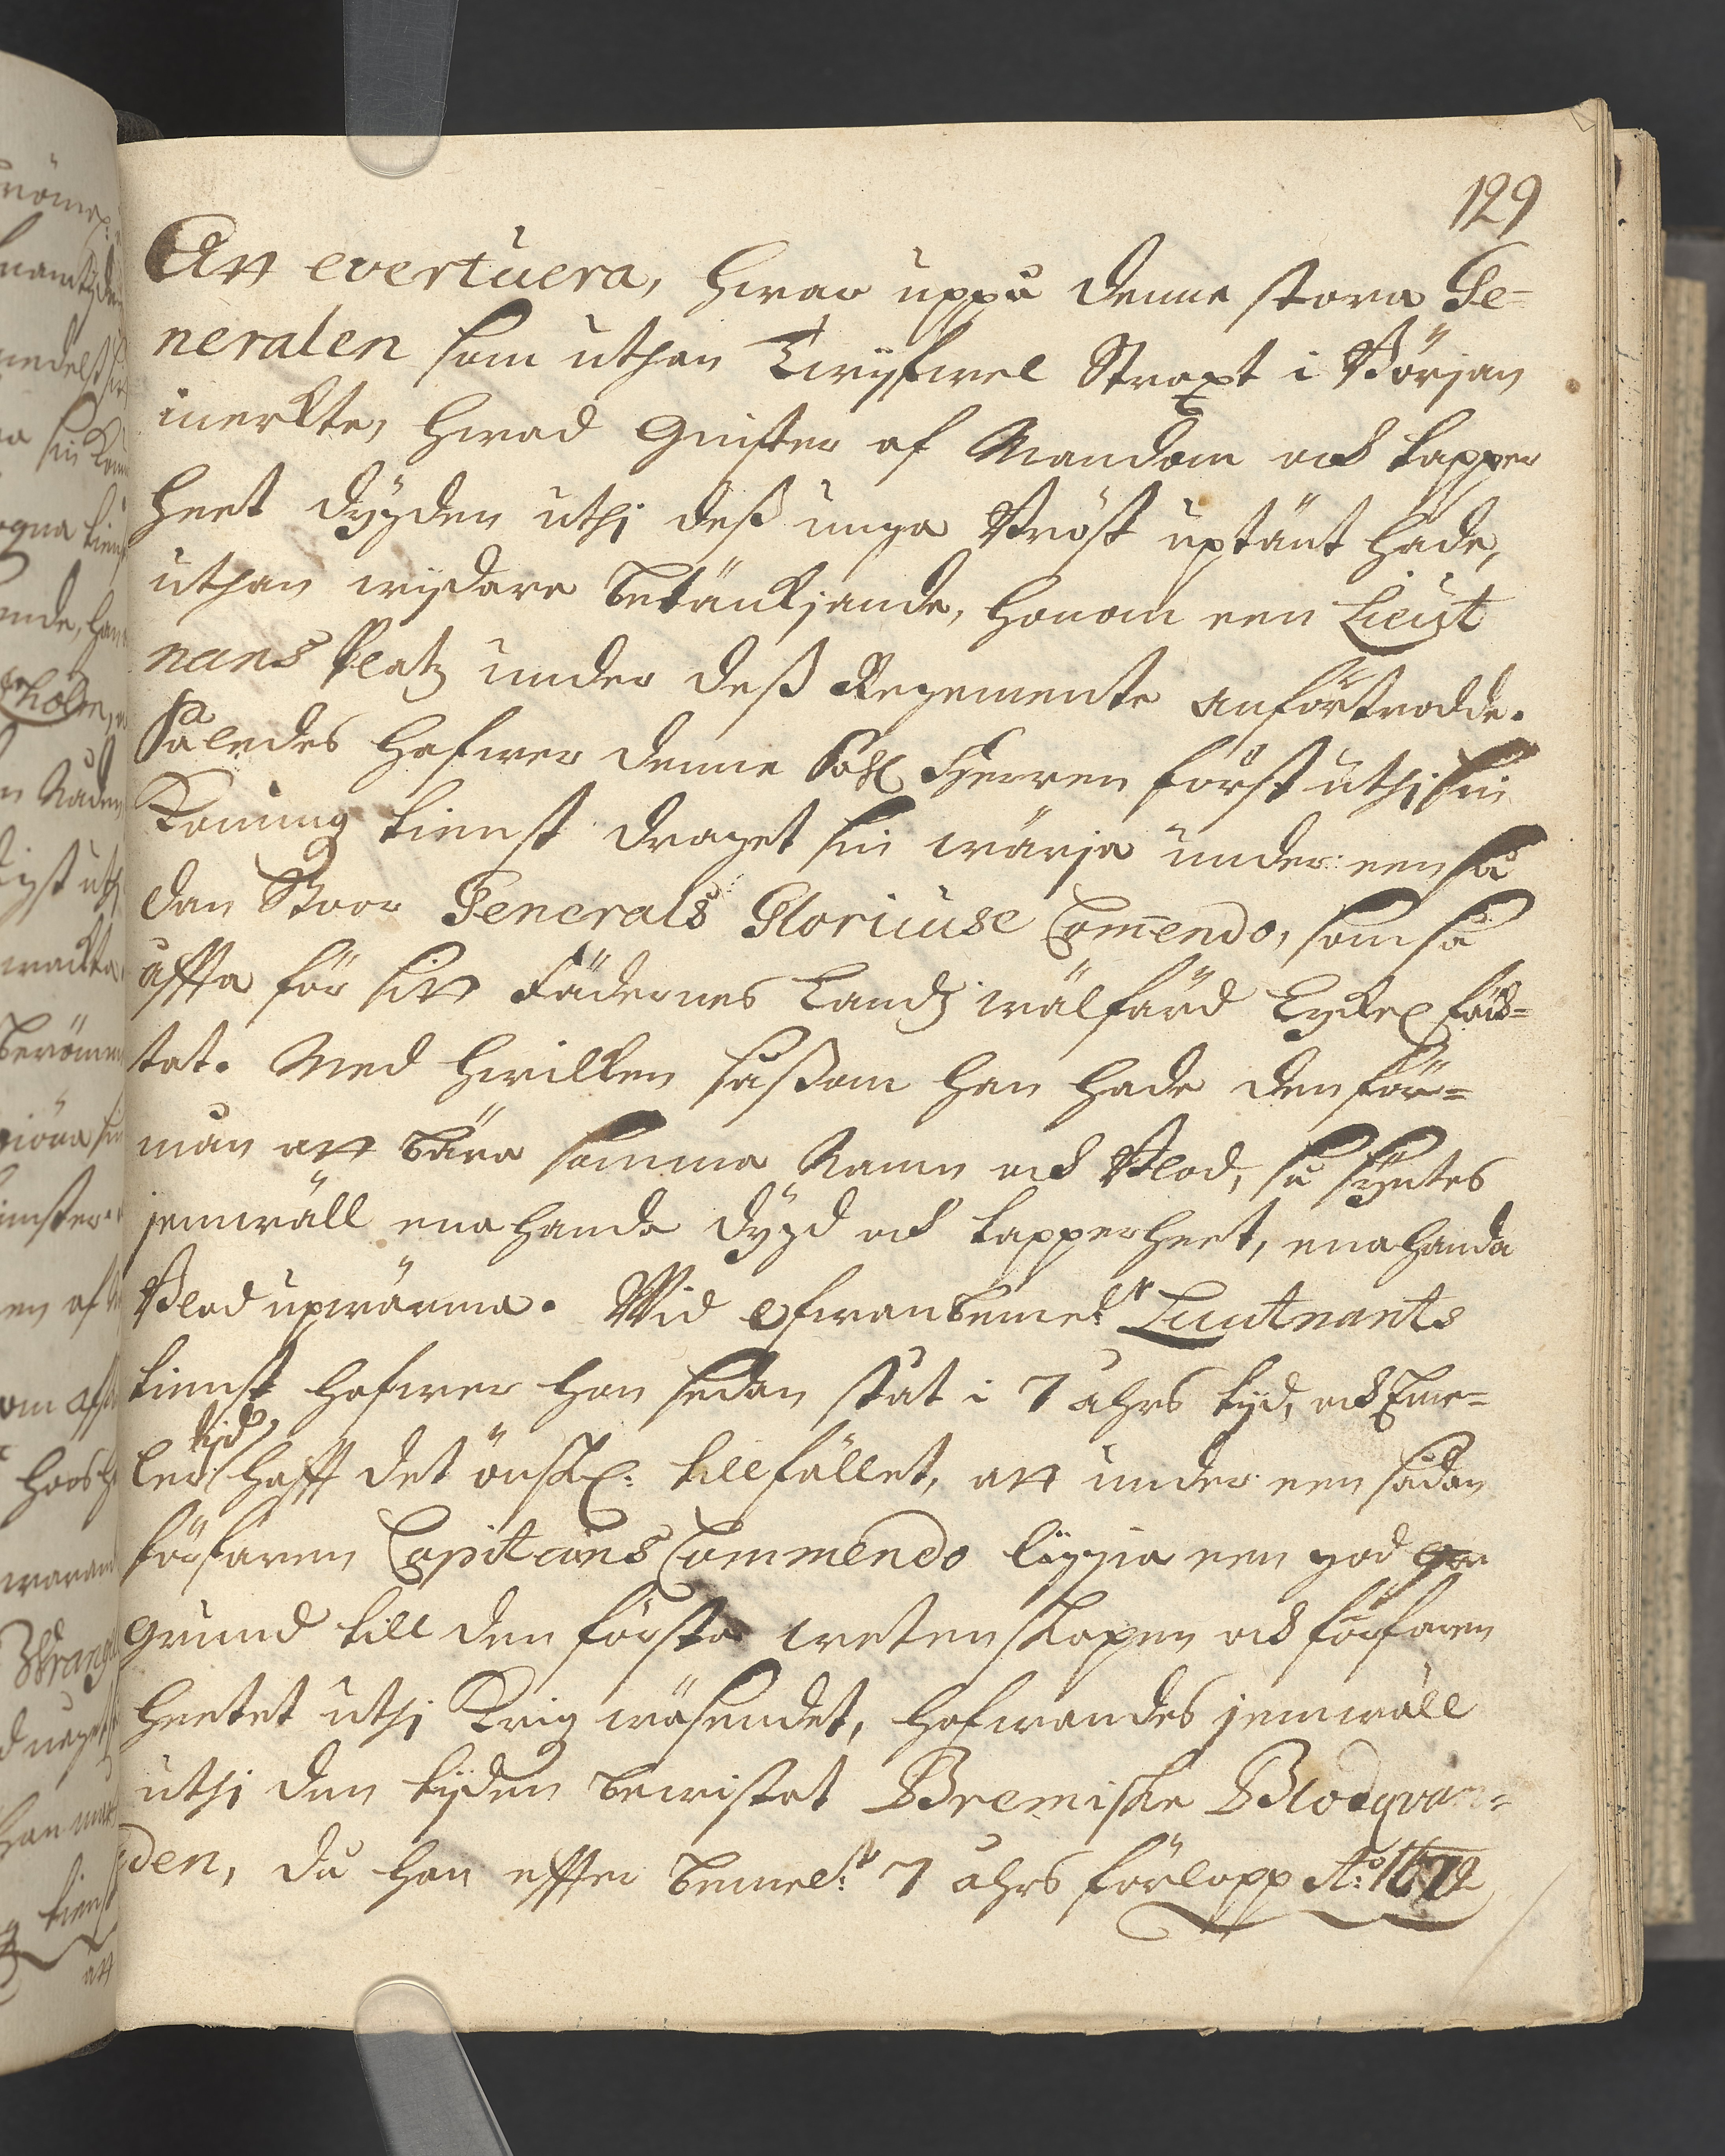 129
Att evertuera, hwar uppå denne stora Ge=
neralen som uthan Twijfwel Straxt i Början
merkte, hwad Gnistor af Mandom och tapper
heet dygden uthj deß unga Bröst uptänt hade,
uthan wijdare betänkjande, honom een Lieut
nans Platz under deß Regemente anförtrodde.
Således hafwer denne Sahl Herren först uthi sin
Konung tienst draget sin wärja under een så
dan Stoor Generals Glorieuse Com̄endo, som så
åffta för sitt Fädernes Landz wälfärd Lyckel fäck=
tat. Med hwilken såßom han hade den för=
mån att bära samma Namn och Blod, så syntes
jemwäll ena handa dygd och tapperheet, ena handa
Blod upwärma. Wid ofwanbeme:te Lieutnants
tienst hafwer han sedan ståt i 7 åhrs tijd, och Eme=
ler tijd hafft det önskl: tillfället, att under een sådan
förfaren Capitains Commendo läggia een god
grund till den första wetenskapen och förfaren
heetet uthj Krig wäsendet, hafwandes jemwäll
uthj den tijden bewistat Bremiske Blocqvan=
den, då han effter bemel:te 7 åhrs förlopp A:o 1672